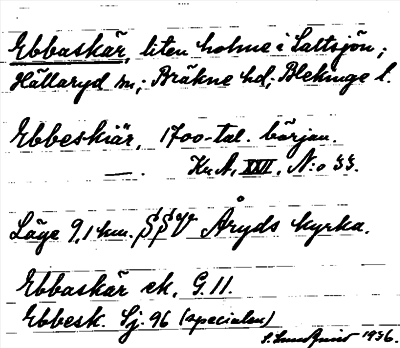 Ebbaskär, liten holme i Saltsjön;
Hällaryd sn; Bräkne hd; Blekinge l.
Ebbeskiär, 1700-tal. början.
—. Kr A, XXII, N:o 33.
Läge 9,1 km. SSV Åryds kyrka.
Ebbaskär ek. G. 11.
Ebbesk. Sj. 96 (specialen)
1936.